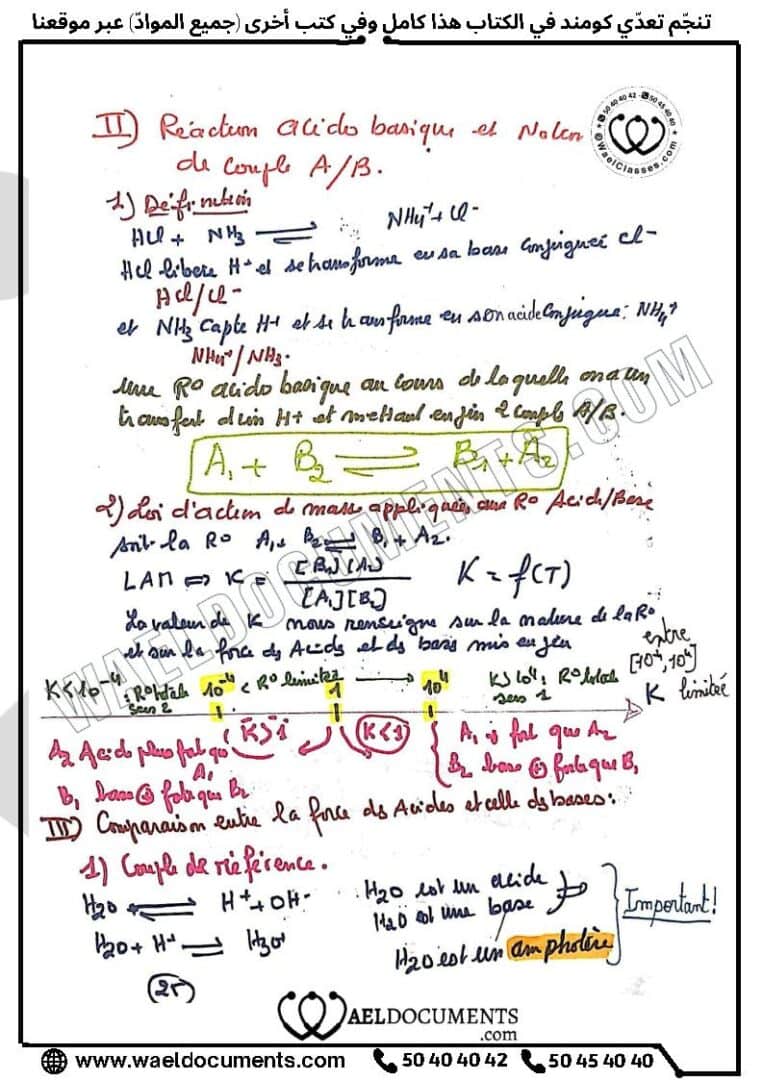 تنجّم تعدّي كومند في الكتاب هذا كامل وفي كتب أخرى (جميع الموادّ) عبر موقعنا
50 40 40 42 • 50 45 40 40
WaelClasses.com
II) Réaction acido basique et Notion
de couple A/B.
1) Définition
HCl + NH3 ⇌ NH4+ + Cl-
HCl libère H+ et se transforme en sa base conjuguée Cl-
HCl/Cl-
et NH3 capte H+ et se transforme en son acide conjugué: NH4+
NH4+/NH3.
Une R° acido basique au cours de laquelle on a un
transfert d'un H+ et mettant en jeu 2 couple A/B.
A1 + B2 ⇌ B1 + A2
2) Loi d'action de masse appliquée aux R° Acide/Base
Soit la R° A1 + B2 ⇌ B1 + A2.
LAM ⇔ K = [B1][A2] / [A1][B2] K = f(T)
La valeur de K nous renseigne sur la nature de la R°
et sur la force ds Acids et ds bases mis en jeu
entre
[10-4, 104]
K limitée
K<10-4 : R° totale sens 2 10-4 < R° limitée 1 → 104 K>104: R° totale sens 1
K>1 K<1
A2 Acide plus fort que A1
B1 base ⊕ forte que B2
A1 + fort que A2
B2 base ⊕ forte que B1
III) Comparaison entre la force ds Acides et celle ds bases:
1) Couple de référence.
H2O ⇌ H+ + OH- H2O est un acide
H2O + H+ ⇌ H3O+ H2O est une base
H2O est un ampholère
Important!
25
WAELDOCUMENTS
.com
www.waeldocuments.com 50 40 40 42 50 45 40 40
WAELDOCUMENTS.COM